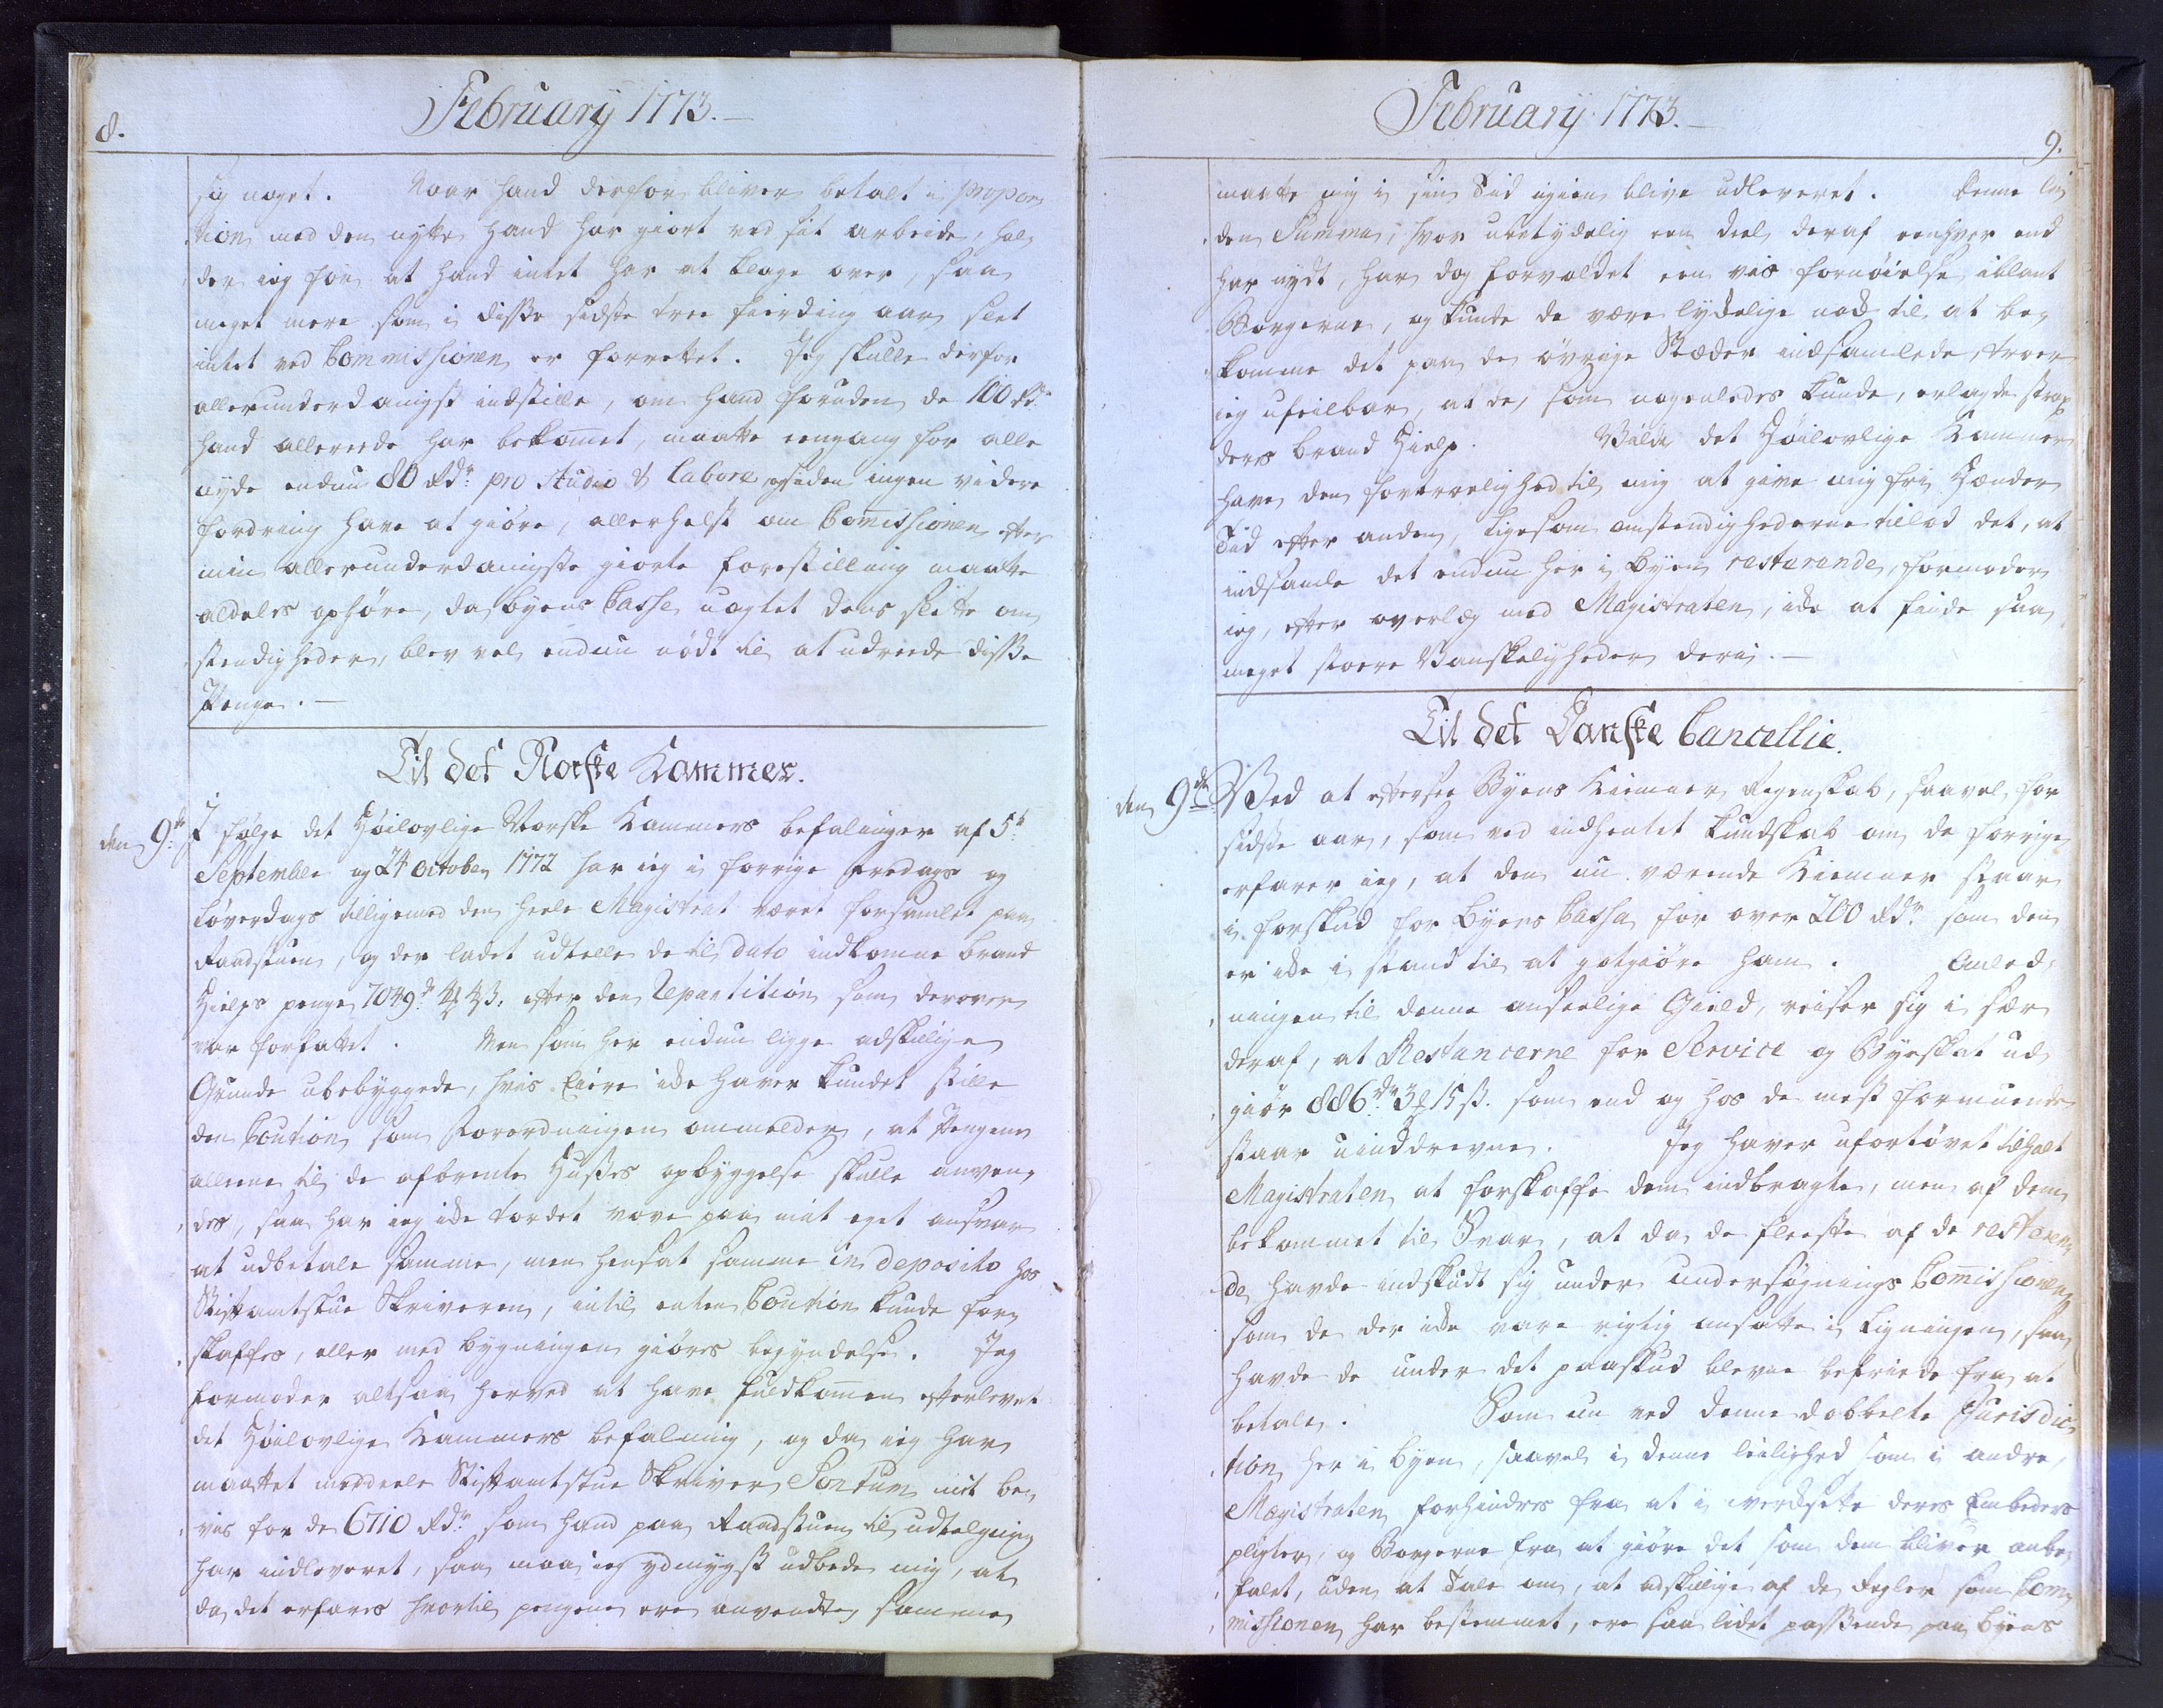 8.
February 1773.
sig noget. Naar hand derfor bliver betalt i propor
tion med den nytte hand har giort ved sit arbeide, hol,
der ieg for at hand intet har at klage over, saa
meget mere som i disse sidste tree fierding aar slet
intet ved Commissionen er forrettet. Jeg skulle derfor
allerunderdanigst indstille, om hand foruden de 100 Rd.
hand allereede har bekomet, maatte eengang for alle
nyde endnu 80 Rdr. pro Studio & Labore, og siden ingen videre
fordring have at giøre, allerhelst om Comissionen efter
min allerunderdanigste giorte forestilling maatte
aldeles ophøre, da byens Casse uagtet dens slette om
stendigheder, blev vel endnu nødt til at udreede disse
Penge.
Til det Norske Kammer.
den 9de
I følge det Høilovlige Norske Kammers befalinger af 5t
September og 24 october 1772 har ieg i forrige fredags og
Løverdags tilligemed den heele Magistrat været forsamlet paa
Raadstuen, og der ladet udtelle de til dato indkomne brand
Hielps penge 7049 4 ß, efter den Repartition som derover
var forfattet. Men som her endnu ligge adskillige
Grunde ubebyggede, hvis Eiere ikke haver kundet stille
den Caution som Forordningen ommelder, at Pengene
alleene til de afbrente Husses opbyggelse skulle anven,
des, saa har ieg ikke tordet vove paa mit eget ansvar
at udbetale samme, men hensat samme in deposito hos
Stiftamtstue Skriveren, intil enten Caution kunde for,
skaffes, eller med bygningen giøres begyndelse. Jeg
formoder altsaa herved at have fuldkommen efterlevet
det Høilovlige Kammers befalning, og da ieg har
maattet meddeele Stiftamtstue Skriver Sontum mit be,
vis for de 6710 Rdr. som hand paa Raadstuen til udtelgning
har indleveret, saa maa ieg ydmygst udbede mig, at
da det erfares hvortil pengene ere anvendte, samme
February 1773.
9.
maatte mig i sin Tid igien blive udleveret. Denne li
den Summa, hvor ubetydelig een deel deraf eenhver end
har nydt, har dog forvoldet een vis fornøielse iblant
Borgerne, og kunde de være lydelige nok til at be,
komme det paa de øvrige Stæder indsamlede, troer
ieg ufeilbar, at de, som nogenledes kunde, erlagde strax
deres brand Hielp. Vilde det Høilovlige Kammer
have den fortroelighed til mig at give mig frie Hænder
Tid efter anden, ligesom omstendighederne tillod det, at
indsamle det endnu her i byen resterende, formoder
ieg, efter overlæg med Magistraten, ikke at finde saa
meget stoere Vanskeligheder deri.
Til det Danske Cancellie.
den 9de
Ved at eftersee Byens Kiemner Regenskab, saavel for
sidste aar, som ved indhentet kundskab om de forrige
erfarer ieg, at den nu værende Kiemner staar
i forskud for byens Cassa for over 200 Rdr. som den
er ikke i stand til at gotgiøre ham. Anled,
ningen til denne anseelige Gield, reiser sig i sær
deraf, at Restancerne for Service og Byeskat ud
giør 886 rdr 3 15 ß. som end og hos de mest formuende
staar uinddrevne. Jeg haver ufortøvet tilholt
Magistraten at forskaffe dem indbragte, men af dem
bekommet til Svar, at da de fleeste af de resteren,
de havde indskudt sig under undersøgnings Comissionen
som de der ikke vare rigtig ansatte i Ligningen, saa
havde de under det paaskud blevne befriede fra at
betale. Som nu ved denne dobbelte Jurisdic
tion her i byen, saavel i denne leilighed som i andre,
Magistraten forhindres fra at i verksette deres Embeders
pligter, og Borgerne fra at giøre det som dem bliver anbe,
falet, uden at Tale om, at adskillige af de Regler som Com,
missionen har bestemmet, ere saa lidet passende paa byens